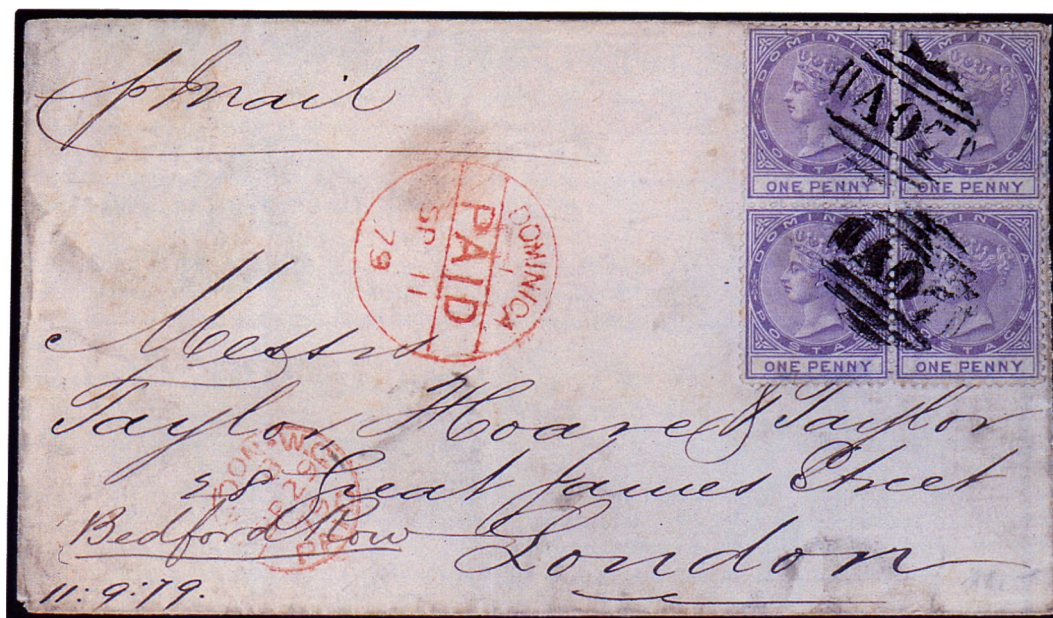 p Mail
DOMINICA
POSTAGE
ONE PENNY
DOMINICA
POSTAGE
ONE PENNY
DOMINICA
POSTAGE
ONE PENNY
DOMINICA
POSTAGE
ONE PENNY
A07
A07
DOMINICA
PAID
SP 11
79
Messrs
Taylor Hoare & Taylor
28 Great James Street
Bedford Row
London
11:9:79.
LONDON W.C
PAID